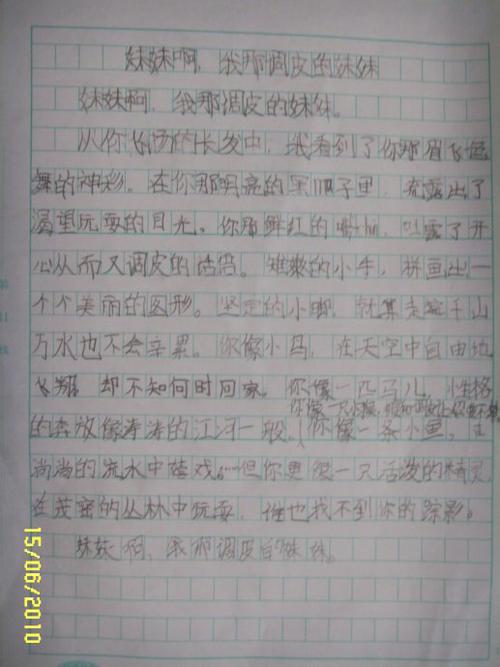 妹妹啊，我那调皮的妹妹
妹妹啊，我那调皮的妹妹。
从你飞扬的长发中，我看到了你那眉飞色
舞的神彩。在你那明亮的黑眼子里，流露出了
渴望玩耍的目光。你那鲜红的嘴chu，吐露了开
心从而又调皮的话语。难数的小手，拼画出一
个个美丽的图形。坚定的小脚，就算走完千山
万水也不会辛累。你像小鸟，在天空中自由地
飞翔，却不知何时回家。你像一匹马儿，性格
你像一只小猴，
的奔放像涛涛的江河一般。你像一条小鱼，在
尚尚的流水中嬉戏……但你更像一只活泼的精灵
在茂密的丛林中玩耍，谁也找不到你的踪影。
妹妹啊，我那调皮的妹妹。
15/06/2010